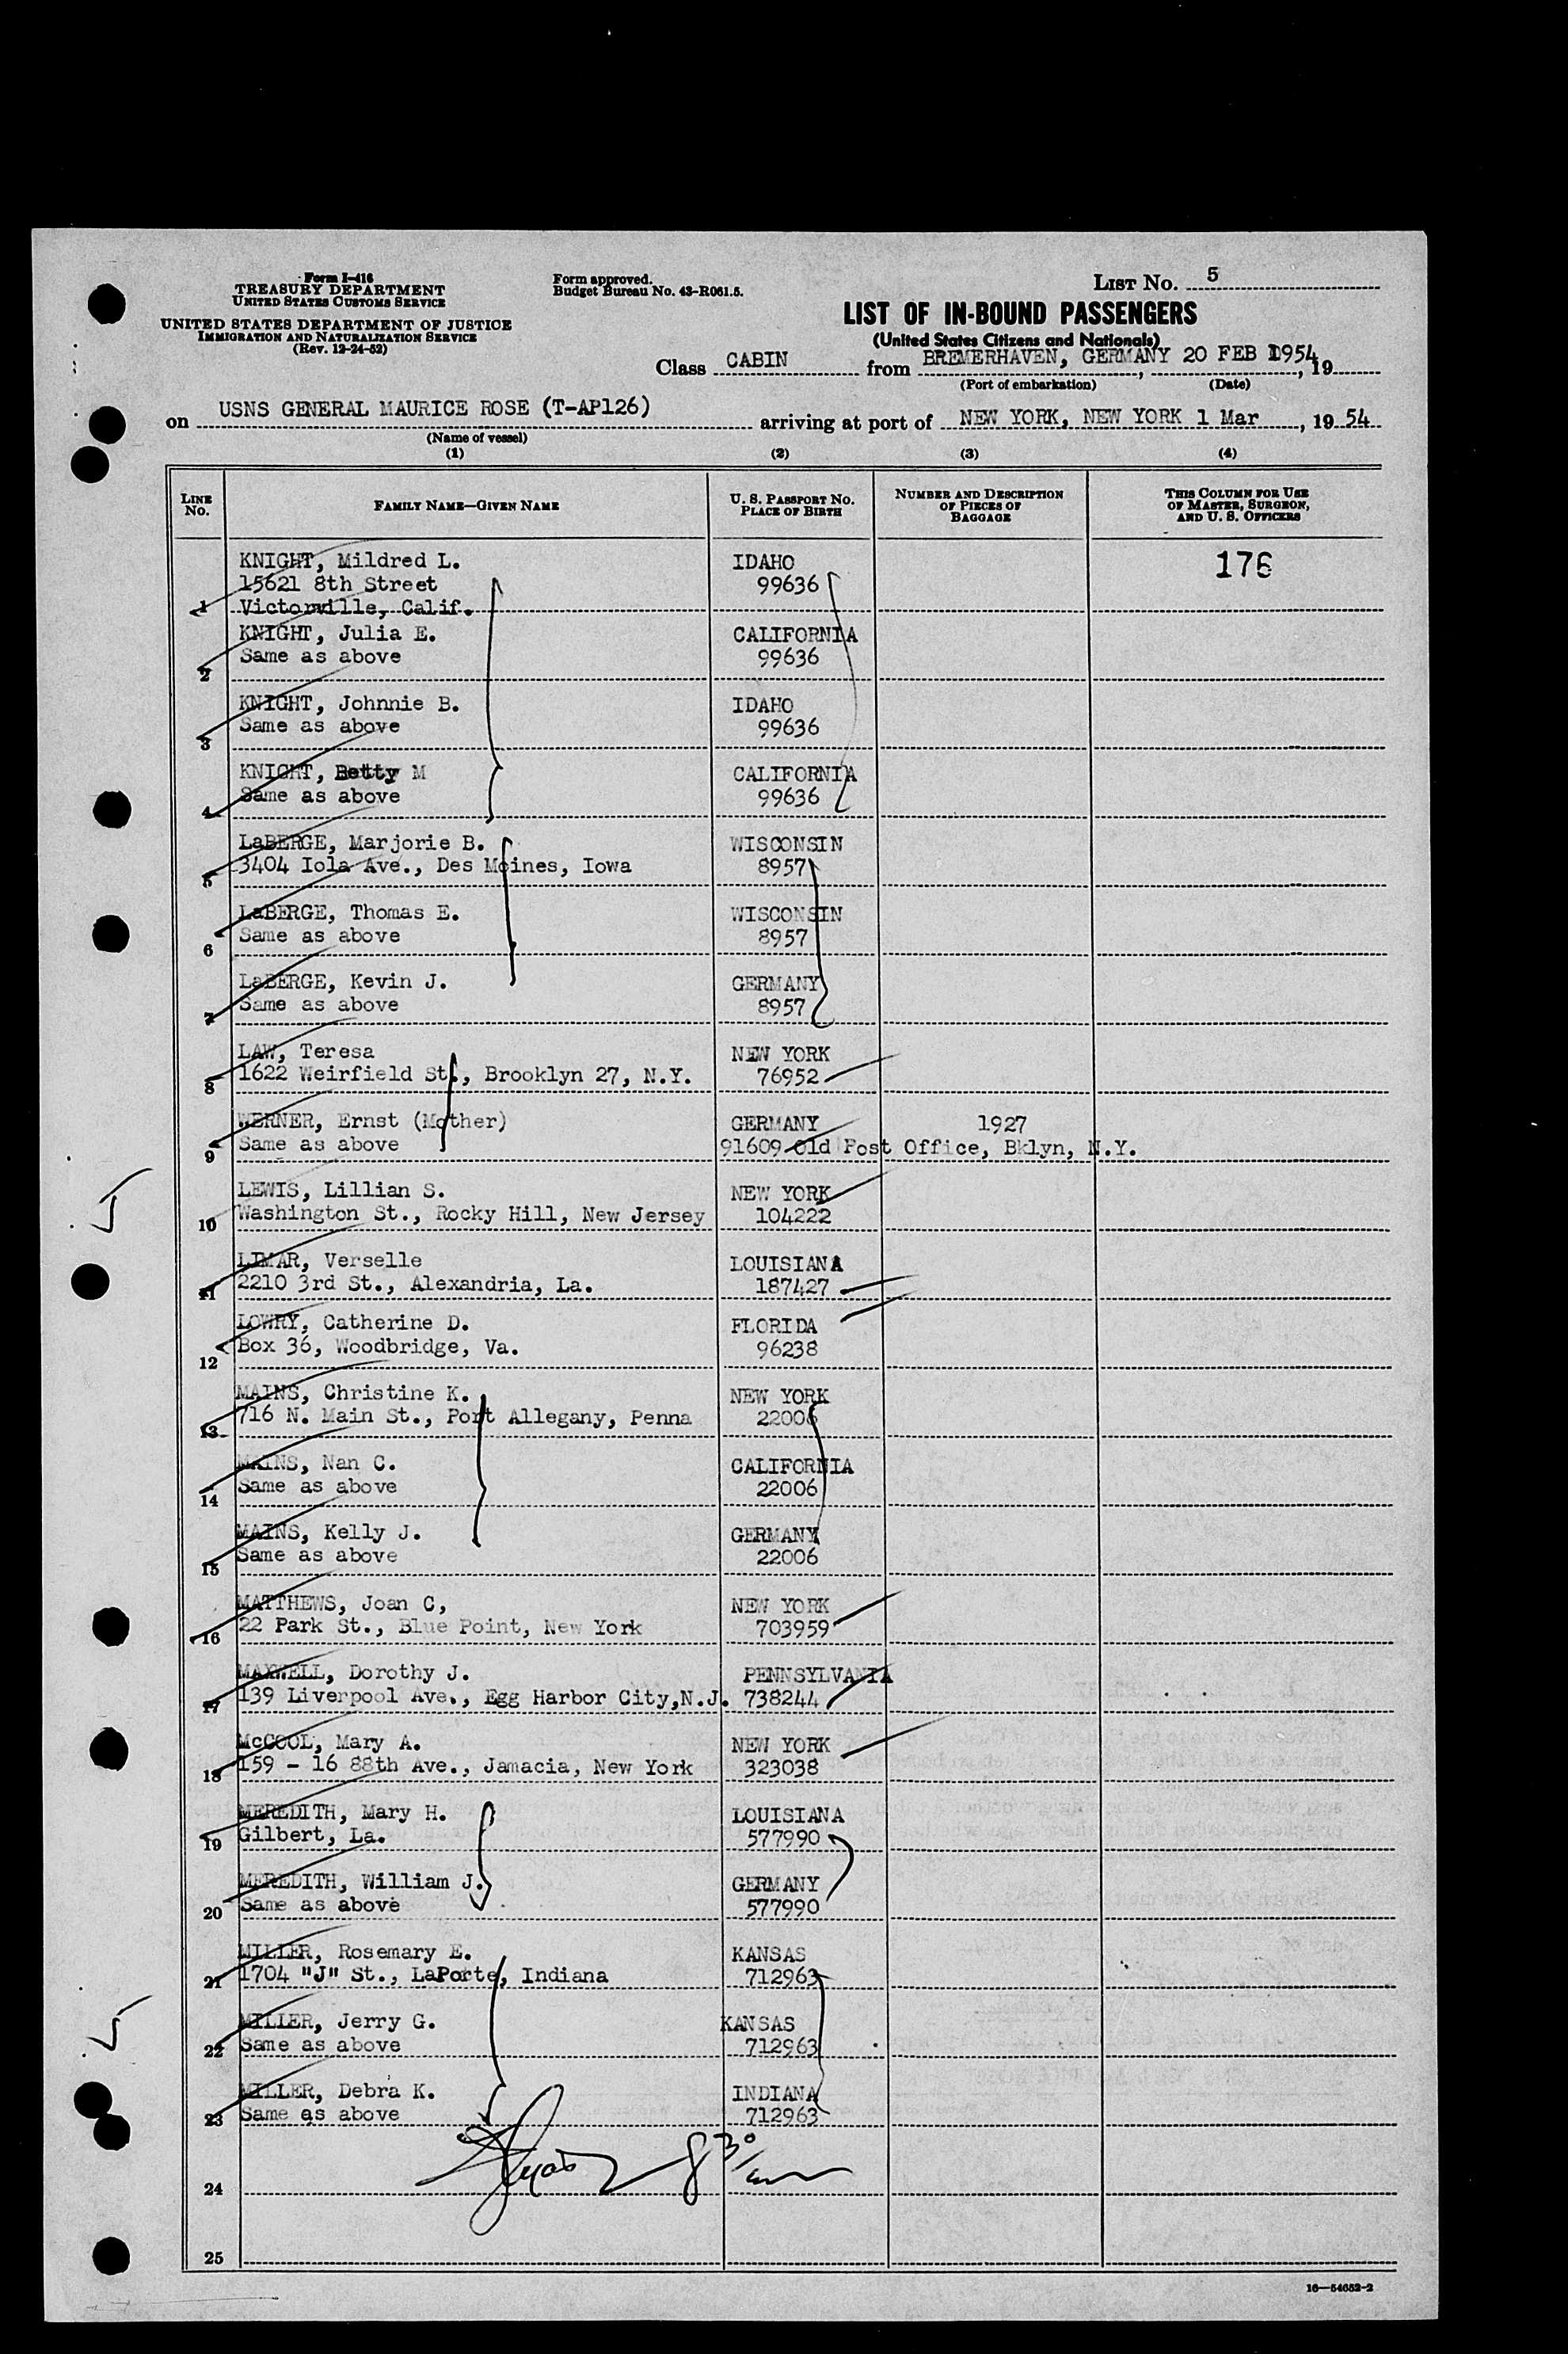 Form I-416
TREASURY DEPARTMENT
UNITED STATES CUSTOMS SERVICE
UNITED STATES DEPARTMENT OF JUSTICE
IMMIGRATION AND NATURALIZATION SERVICE
(Rev. 12-24-52)
Form approved.
Budget Bureau No. 43-R061.5.
LIST No. 5
LIST OF IN-BOUND PASSENGERS
(United States Citizens and Nationals)
Class CABIN from BREMERHAVEN, GERMANY 20 FEB 1954, 19
(Port of embarkation) (Date)
on USNS GENERAL MAURICE ROSE (T-AP126) arriving at port of NEW YORK, NEW YORK 1 Mar, 19 54
(Name of vessel)
(1) (2) (3) (4)
LINE NO.
FAMILY NAME—GIVEN NAME
U. S. PASSPORT NO.
PLACE OF BIRTH
NUMBER AND DESCRIPTION
OF PIECES OF
BAGGAGE
THIS COLUMN FOR USE
OF MASTER, SURGEON,
AND U. S. OFFICERS
KNIGHT, Mildred L. IDAHO 176
15621 8th Street 99636
1 Victorville, Calif.
KNIGHT, Julia E. CALIFORNIA
2 Same as above 99636
KNIGHT, Johnnie B. IDAHO
3 Same as above 99636
KNIGHT, Betty M CALIFORNIA
4 Same as above 99636
LaBERGE, Marjorie B. WISCONSIN
5 3404 Iola Ave., Des Moines, Iowa 8957
LaBERGE, Thomas E. WISCONSIN
6 Same as above 8957
LaBERGE, Kevin J. GERMANY
7 Same as above 8957
LAW, Teresa NEW YORK
8 1622 Weirfield St., Brooklyn 27, N.Y. 76952
WERNER, Ernst (Mother) GERMANY 1927
9 Same as above 91609 Old Post Office, Bklyn, N.Y.
LEWIS, Lillian S. NEW YORK
10 Washington St., Rocky Hill, New Jersey 104222
LIMAR, Verselle LOUISIANA
11 2210 3rd St., Alexandria, La. 187427
LOWRY, Catherine D. FLORIDA
12 Box 36, Woodbridge, Va. 96238
MAINS, Christine K. NEW YORK
13 716 N. Main St., Port Allegany, Penna 22006
MAINS, Nan C. CALIFORNIA
14 Same as above 22006
MAINS, Kelly J. GERMANY
15 Same as above 22006
MATTHEWS, Joan C, NEW YORK
16 22 Park St., Blue Point, New York 703959
MAXWELL, Dorothy J. PENNSYLVANIA
17 139 Liverpool Ave., Egg Harbor City,N.J. 738244
McCOOL, Mary A. NEW YORK
18 159 - 16 88th Ave., Jamacia, New York 323038
MEREDITH, Mary H. LOUISIANA
19 Gilbert, La. 577990
MEREDITH, William J. GERMANY
20 Same as above 577990
MILLER, Rosemary E. KANSAS
21 1704 "J" St., LaPorte, Indiana 712963
MILLER, Jerry G. KANSAS
22 Same as above 712963
MILLER, Debra K. INDIANA
23 Same as above 712963
24
25
16—54652-2